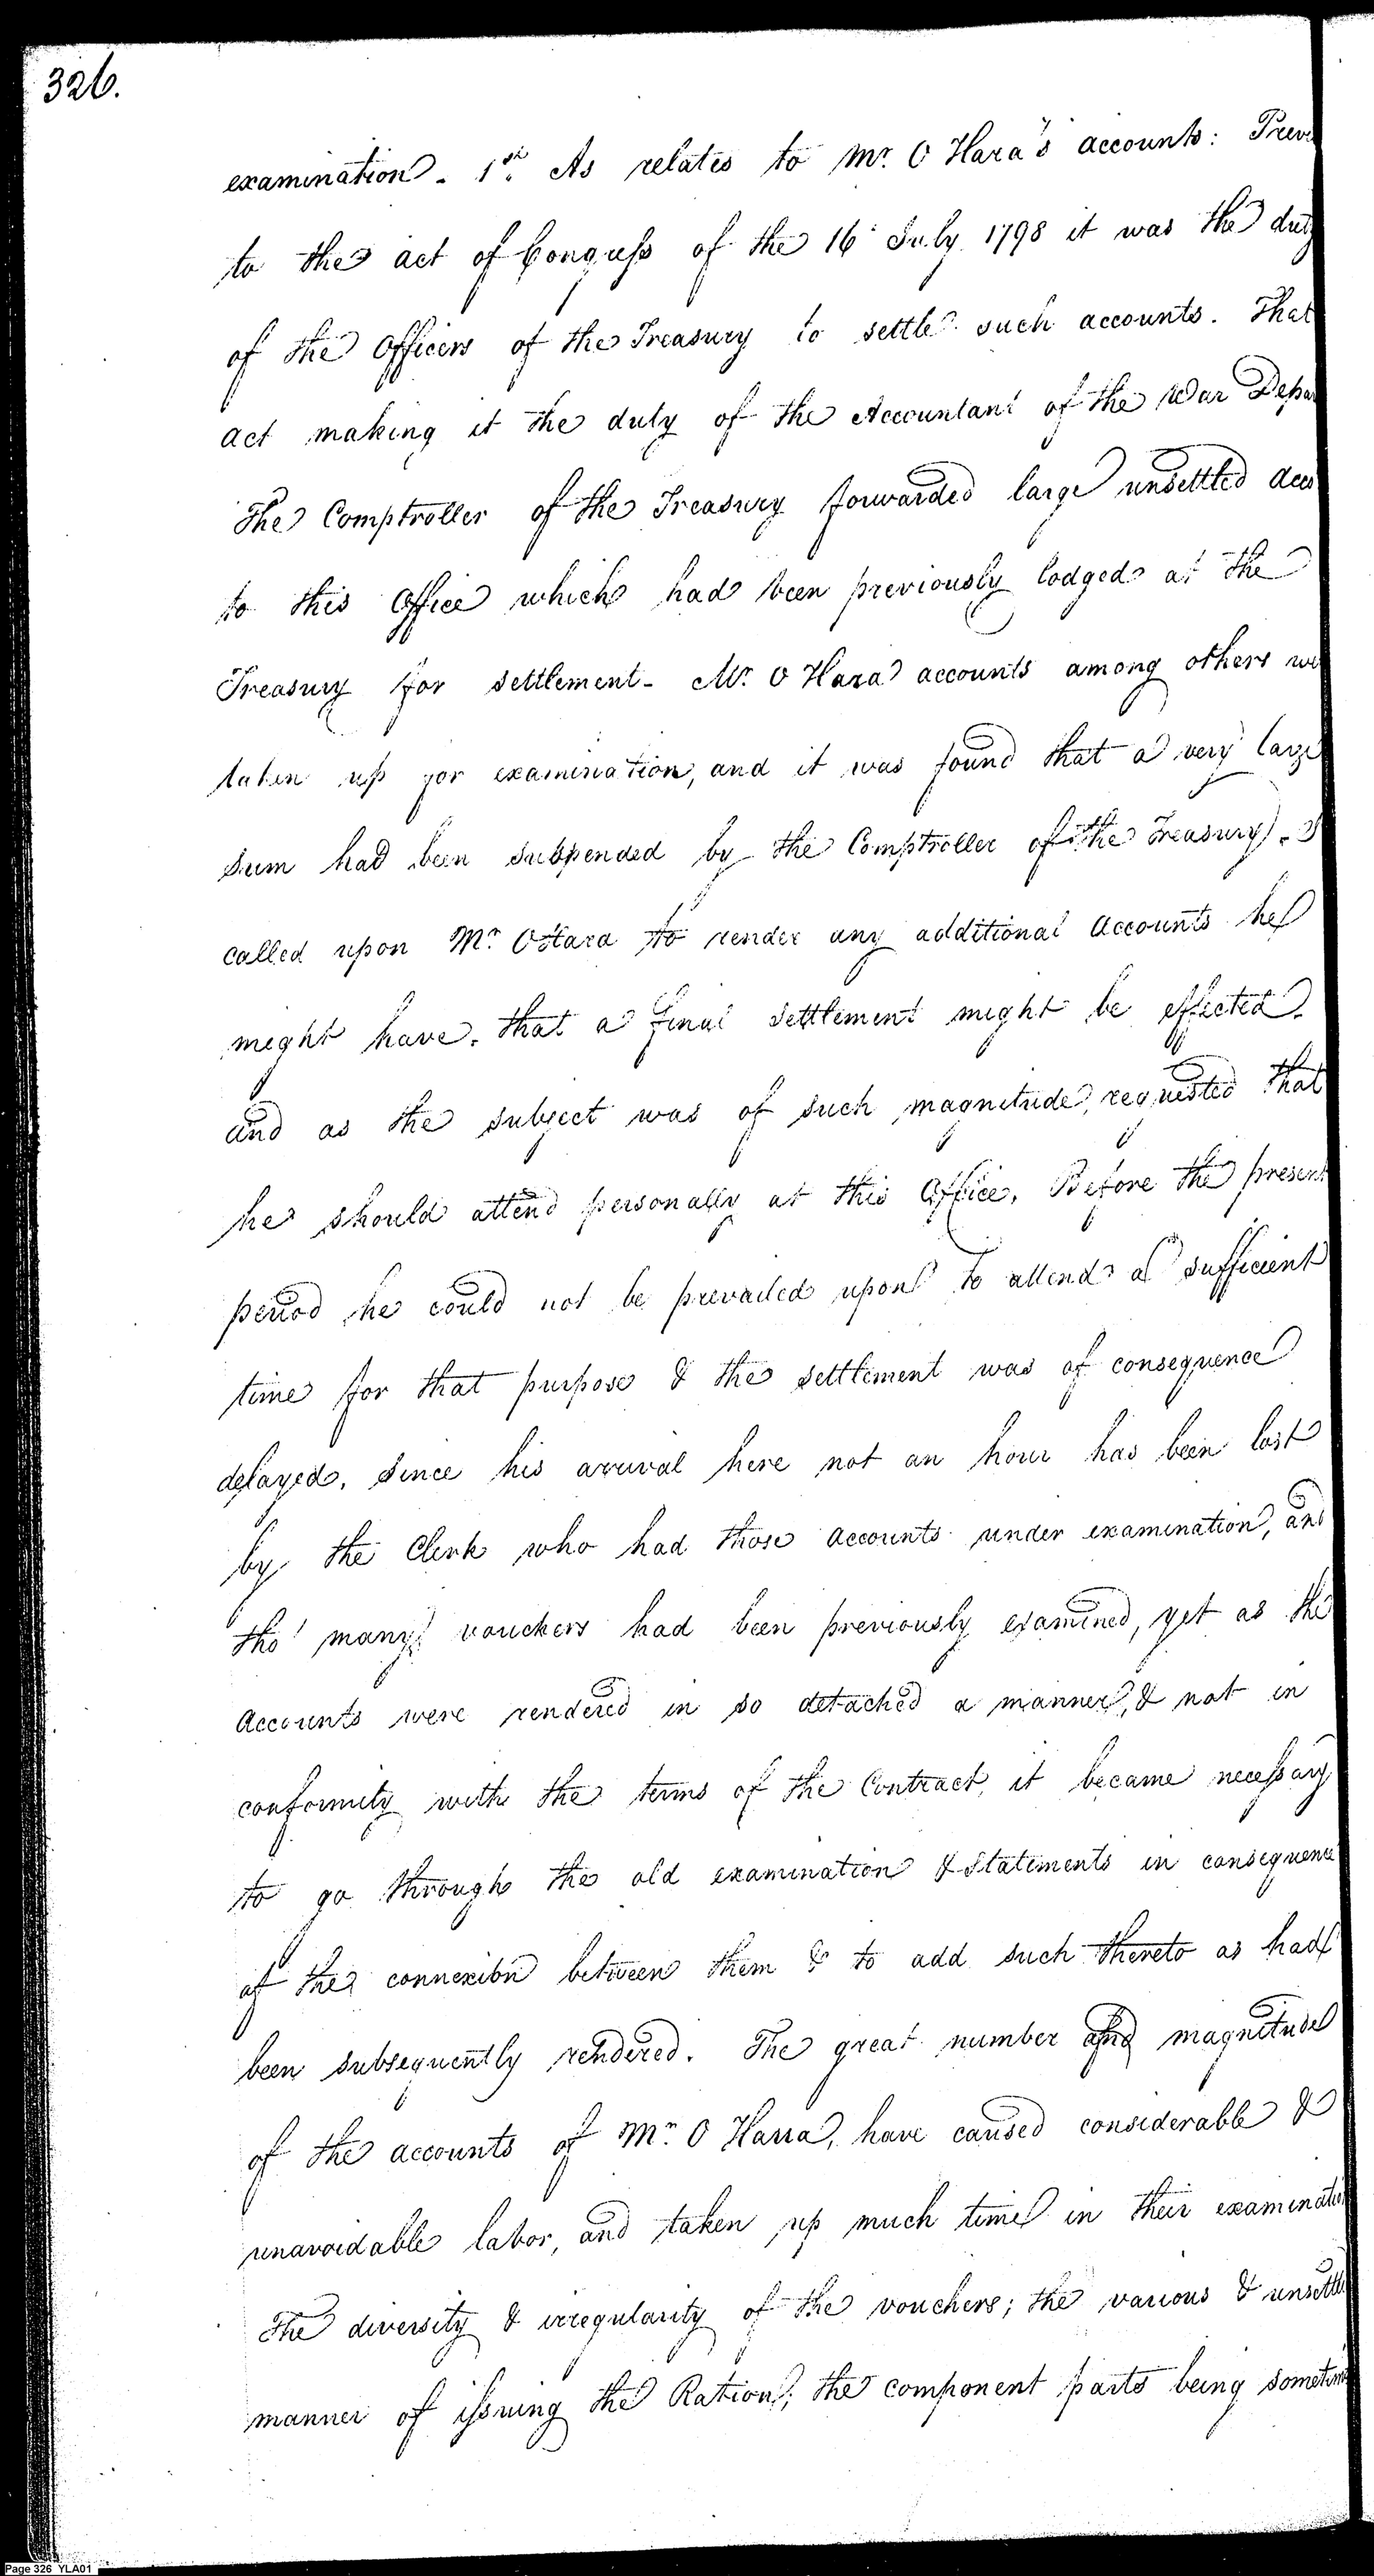 326.
examination. 1st. As relates to Mr. O Hara's accounts: Prev
to the act of Congress of the 16 July 1798 it was the duty
of the Officers of the Treasury to settle such accounts. That
act making it the duty of the Accountant of the War Depar
The Comptroller of the Treasury forwarded large unsettled Acco
to this Office which had been previously lodged at the
Treasury for settlement. Mr. O Hara accounts among others we
taken up for examination, and it was found that a very large
sum had been suspended by the Comptroller of the Treasury. I
called upon Mr. OHara to render any additional Accounts he
might have, that a final settlement might be effected.
and as the subject was of such magnitude, requested that
he should attend personally at this Office. Before the present
period he could not be prevailed upon to attend a sufficient
time for that purpose & the settlement was of consequence
delayed. Since his arrival here not an hour has been lost
by the Clerk who had those accounts under examination, and
tho' many vouchers had been previously examined, yet as the
Accounts were rendered in so detached a manner, & not in
conformity with the terms of the Contract, it became necessary
to go through the old examination & Statements in consequence
of the connexion between them & to add such thereto as had
been subsequently rendered. The great number and magnitude
of the accounts of Mr. O Harra, have caused considerable &
unavoidable labor, and taken up much time in their examinatio
The diversity & irregularity of the vouchers; the various & unsettle
manner of issuing the Ration; the component parts being sometim
Page 326 YLA01